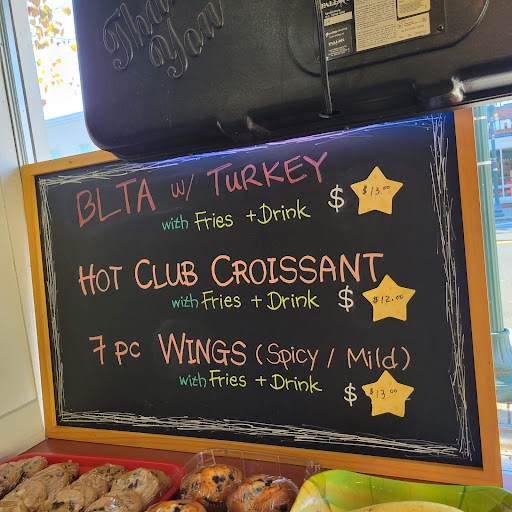 Thank
You
BLTA w/ TURKEY
with Fries + Drink $ $13.00
HOT CLUB CROISSANT
with Fries + Drink $ $12.00
7 pc WINGS (Spicy / Mild)
with Fries + Drink $ $13.00